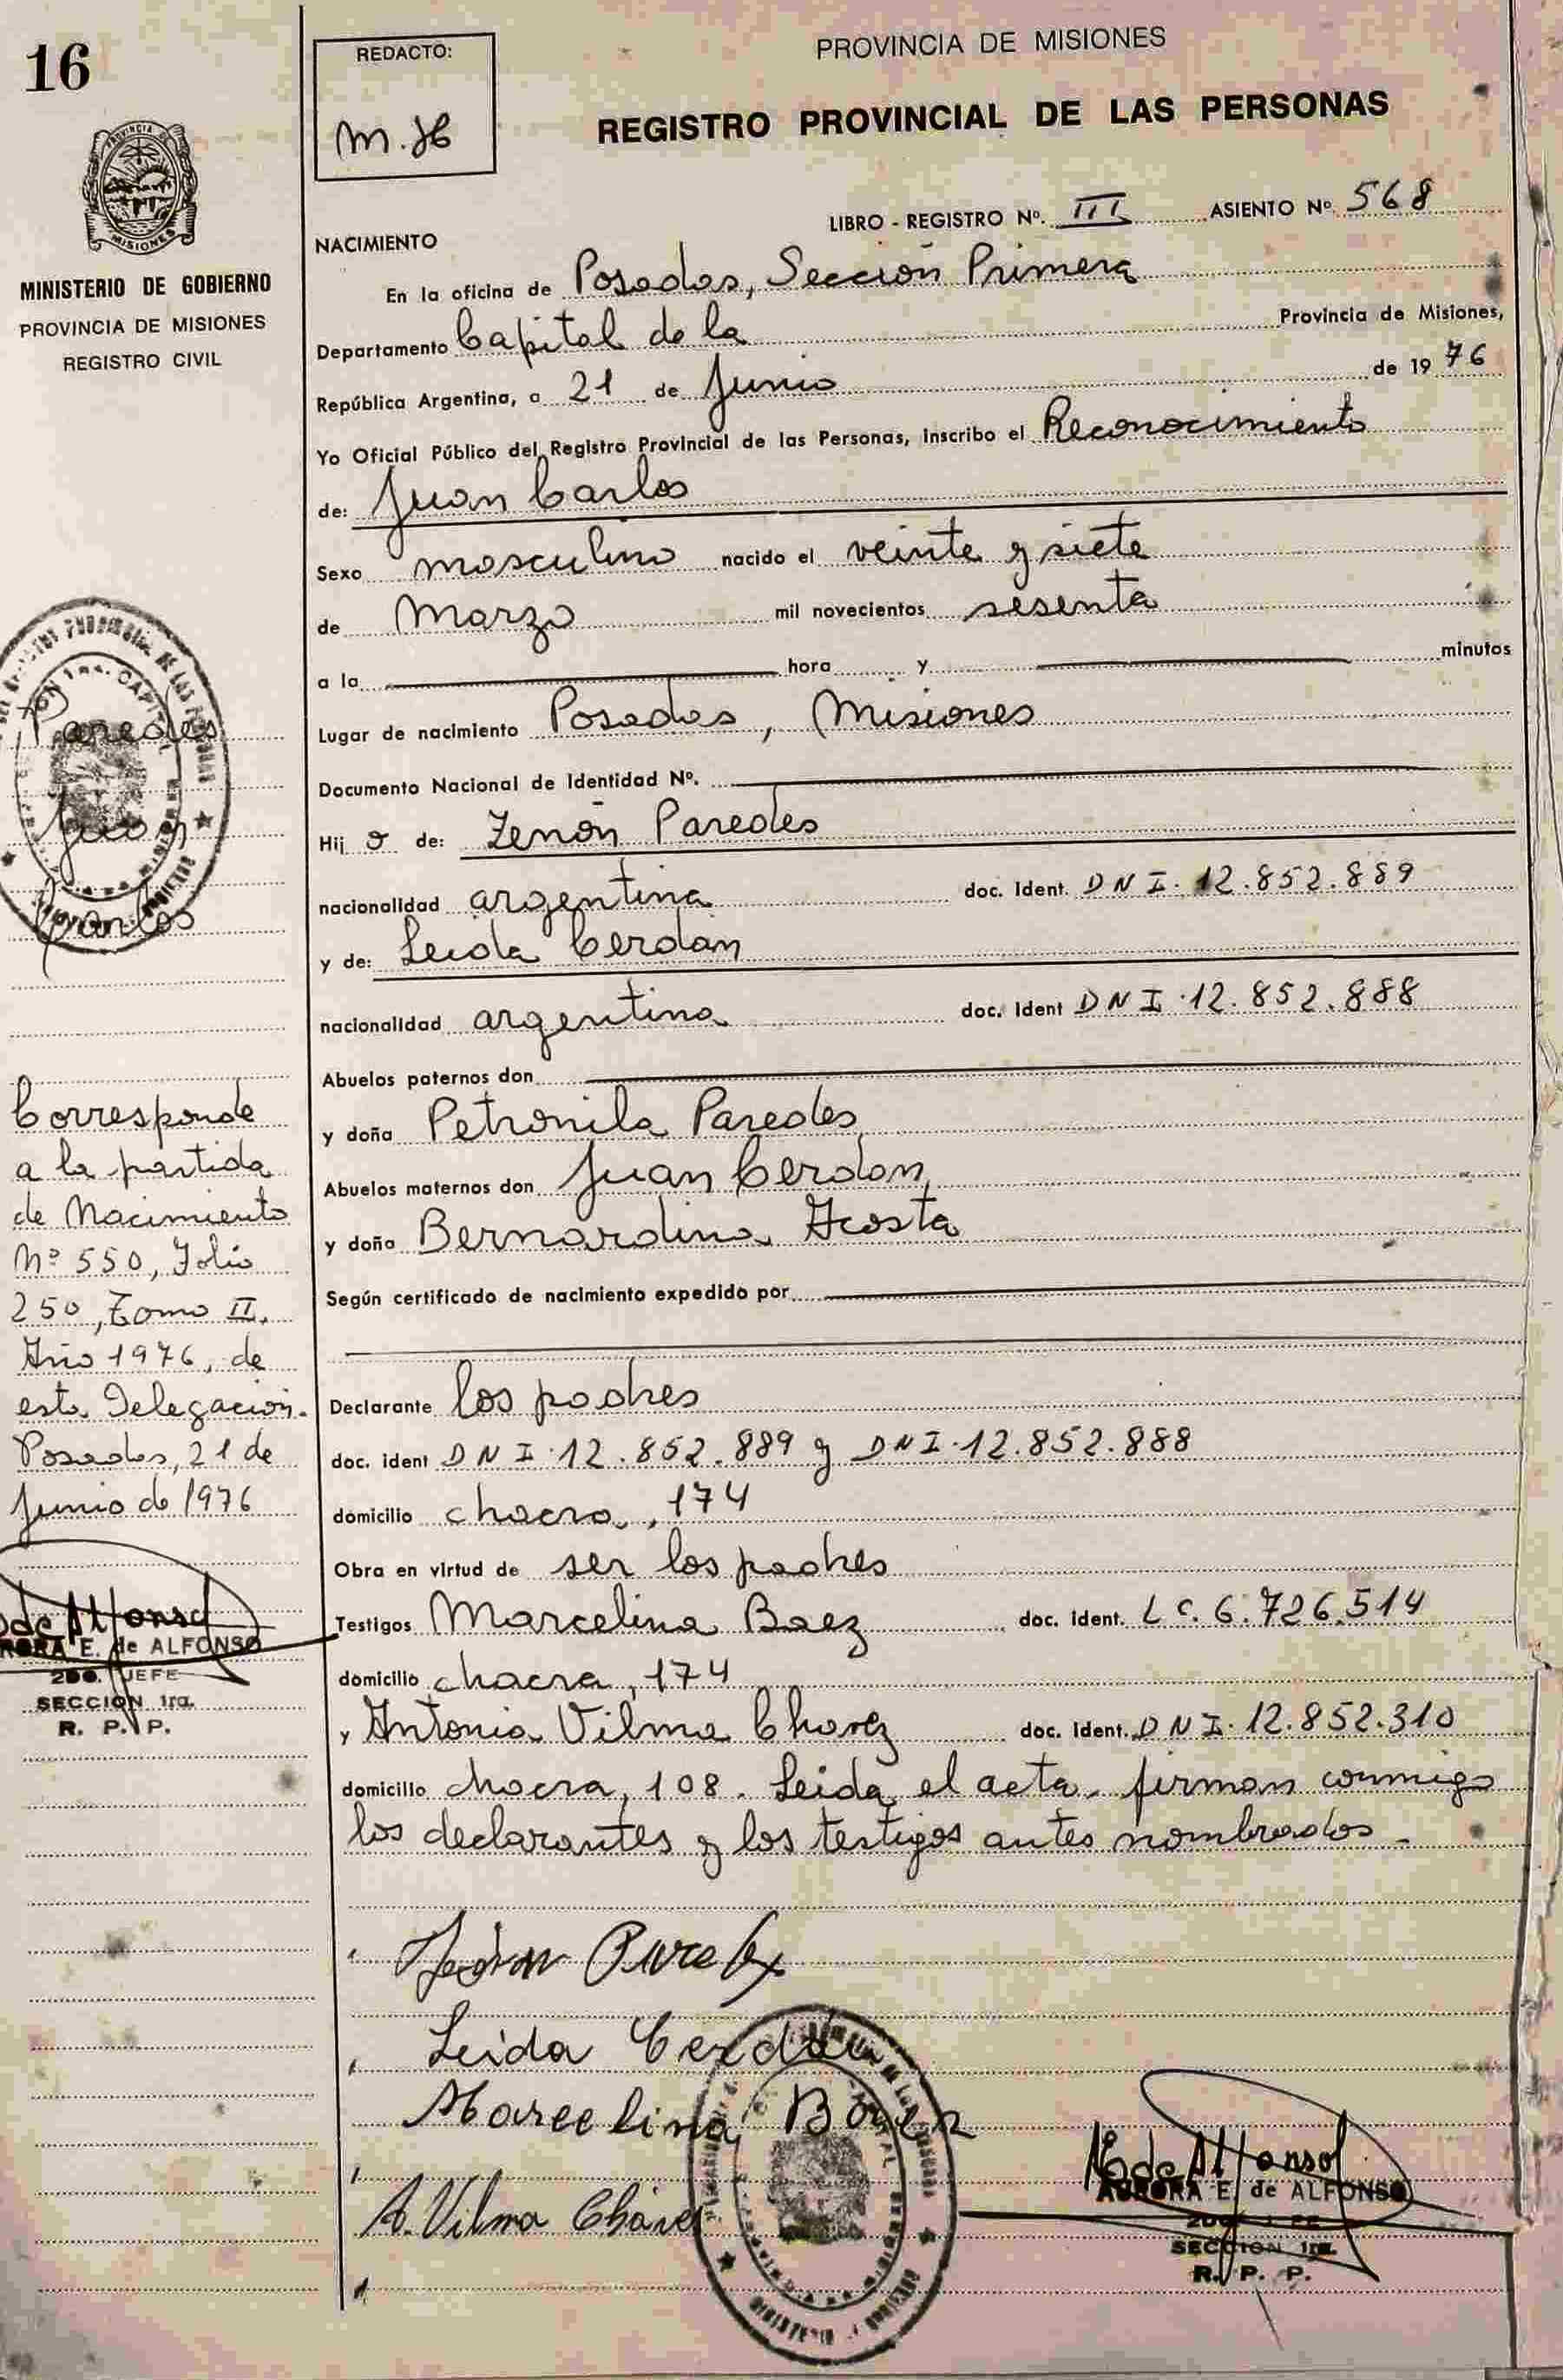 16
REDACTO:
M.H
PROVINCIA DE MISIONES
REGISTRO PROVINCIAL DE LAS PERSONAS
PROVINCIA DE
MISIONES
MINISTERIO DE GOBIERNO
PROVINCIA DE MISIONES
REGISTRO CIVIL
LIBRO - REGISTRO Nº. III ASIENTO Nº 568
NACIMIENTO
En la oficina de Posadas, Sección Primera
Departamento Capital de la Provincia de Misiones,
República Argentina, a 21 de Junio de 1976
Yo Oficial Público del Registro Provincial de las Personas, inscribo el Reconocimiento
de: Juan Carlos
Sexo masculino nacido el veinte y siete
de Marzo mil novecientos sesenta
a la hora y minutos
Lugar de nacimiento Posadas, Misiones
Documento Nacional de Identidad Nº.
Hijo de: Zenón Paredes
nacionalidad argentina doc. Ident. DNI. 12.852.889
y de: Leida Cerdan
nacionalidad argentina doc. Ident DNI.12.852.888
Abuelos paternos don
y doña Petronila Paredes
Abuelos maternos don Juan Cerdan
y doña Bernardina Acosta
Según certificado de nacimiento expedido por
Declarante los padres
doc. ident DNI.12.852.889 y DNI.12.852.888
domicilio chacra, 174
Obra en virtud de ser los padres
Testigos Marcelina Baez doc. ident. LC. 6.726.514
domicilio chacra, 174
y Antonia Vilma Chavez doc. Ident. DNI. 12.852.310
domicilio chacra, 108. Leida el acta, firman conmigo
los declarantes y los testigos antes nombrados.
Leida Cerdán
Marcelina Baez
A. Vilma Chávez
AURORA E. de ALFONSO
2DO. JEFE
SECCION 1ra.
R. P. P.
Paredes
Juan
Carlos
Corresponde
a la partida
de Nacimiento
Nº 550, Folio
250, Tomo II,
Año 1976, de
esta Delegación.
Posadas, 21 de
Junio de 1976
AURORA E. de ALFONSO
2DO. JEFE
SECCION 1ra.
R. P. P.